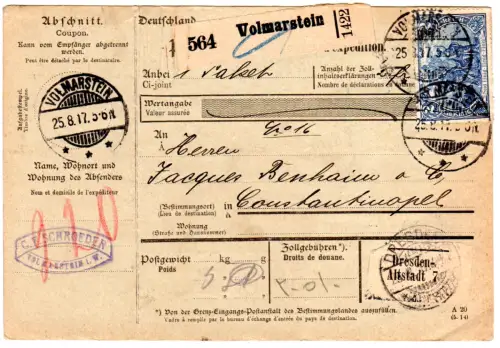 Abschnitt.
Coupon.
Kann vom Empfänger abgetrennt
werden.
Peut être détaché par le destinataire.
Deutschland
564 Volmarstein
expedition.
Anbei 1 Paket
Ci-joint
Anzahl der Zoll-
inhaltserklärungen
Nombre de déclarations en douane
Wertangabe
Valeur assurée
VOLMARSTEIN
25.8.17. 5-6N.
25.8.17. 5-6N.
Name, Wohnort und
Wohnung des Absenders
Nom et domicile de l'expéditeur
An
À
Herren
Jacques Benhaim & Co
Constantinopel
(Bestimmungsort)
(Lieu de destination)
Wohnung
(Straße und Hausnummer)
C. SCHROEDER
VOLMARSTEIN i. W.
Postgewicht
Poids
kg
g
Zollgebühren*).
Droits de douane.
Dresden-
Altstadt 7
*) Von der Grenz-Eingangs-Postanstalt des Bestimmungslandes auszufüllen.
À remplir par le bureau d'échange d'entrée du pays de destination.